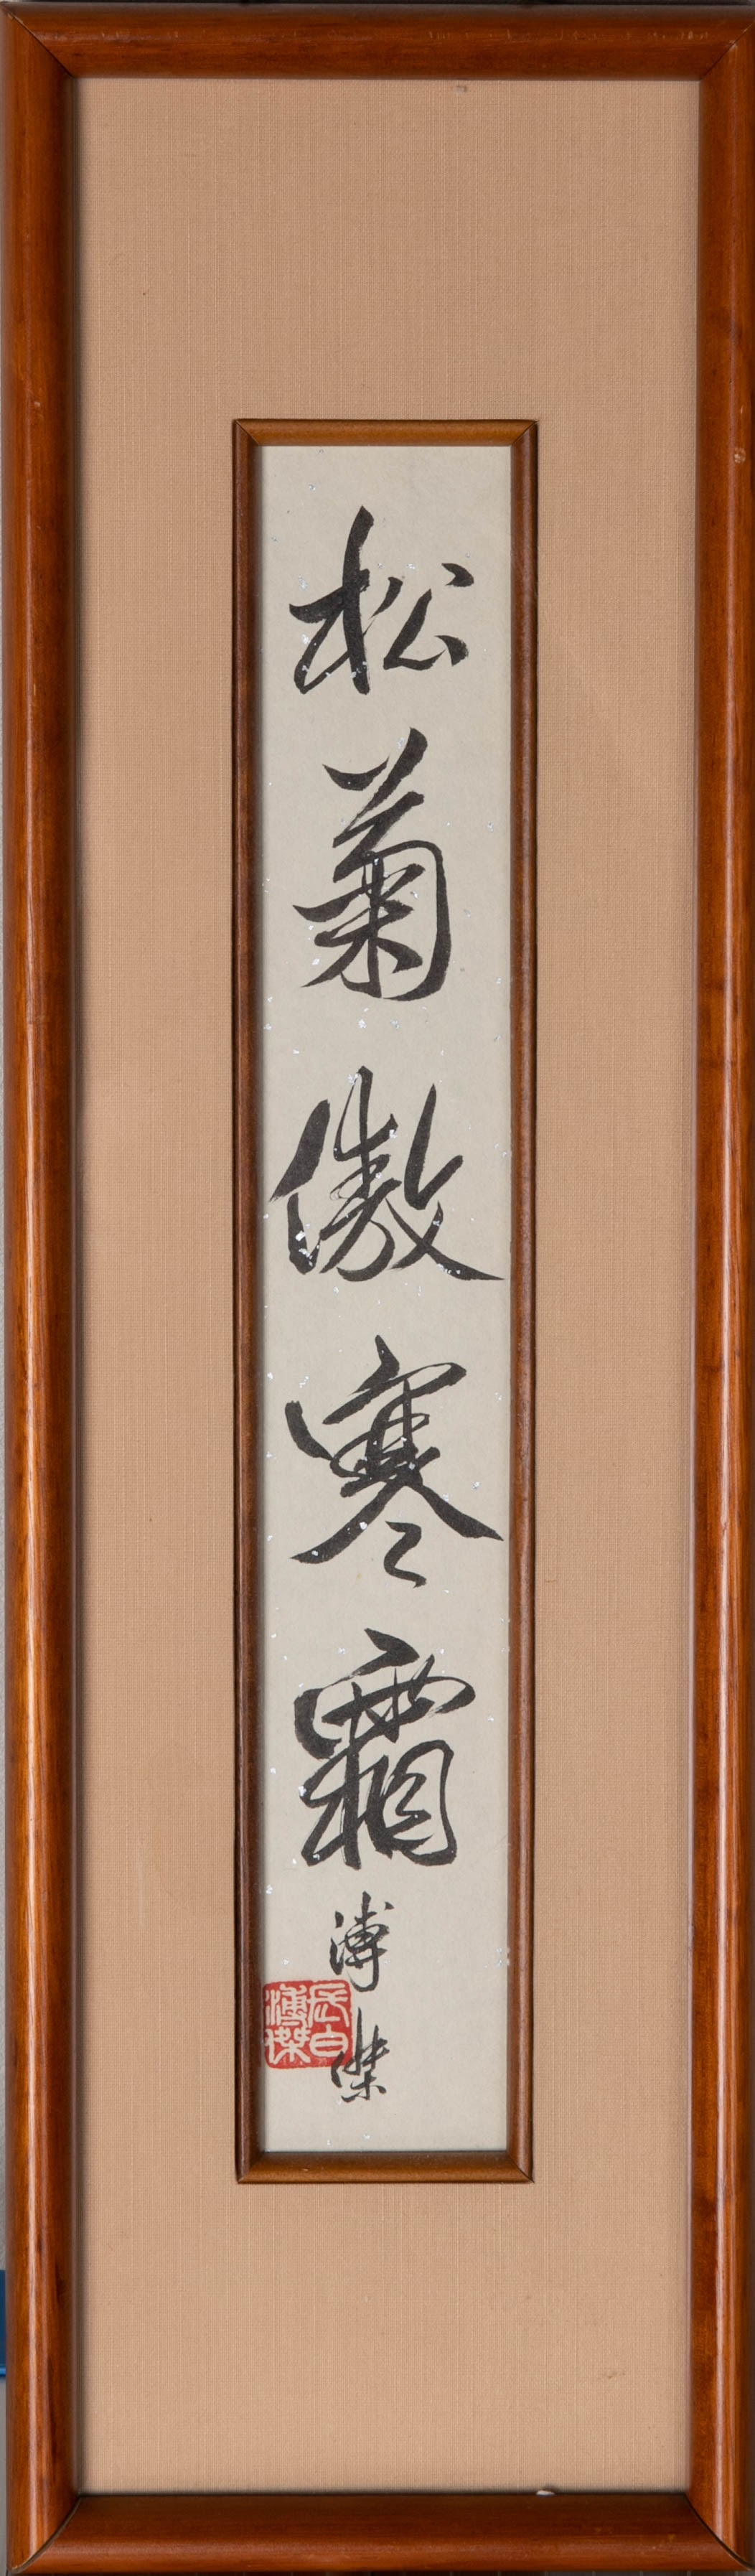 松菊傲寒霜
溥傑
長白溥傑